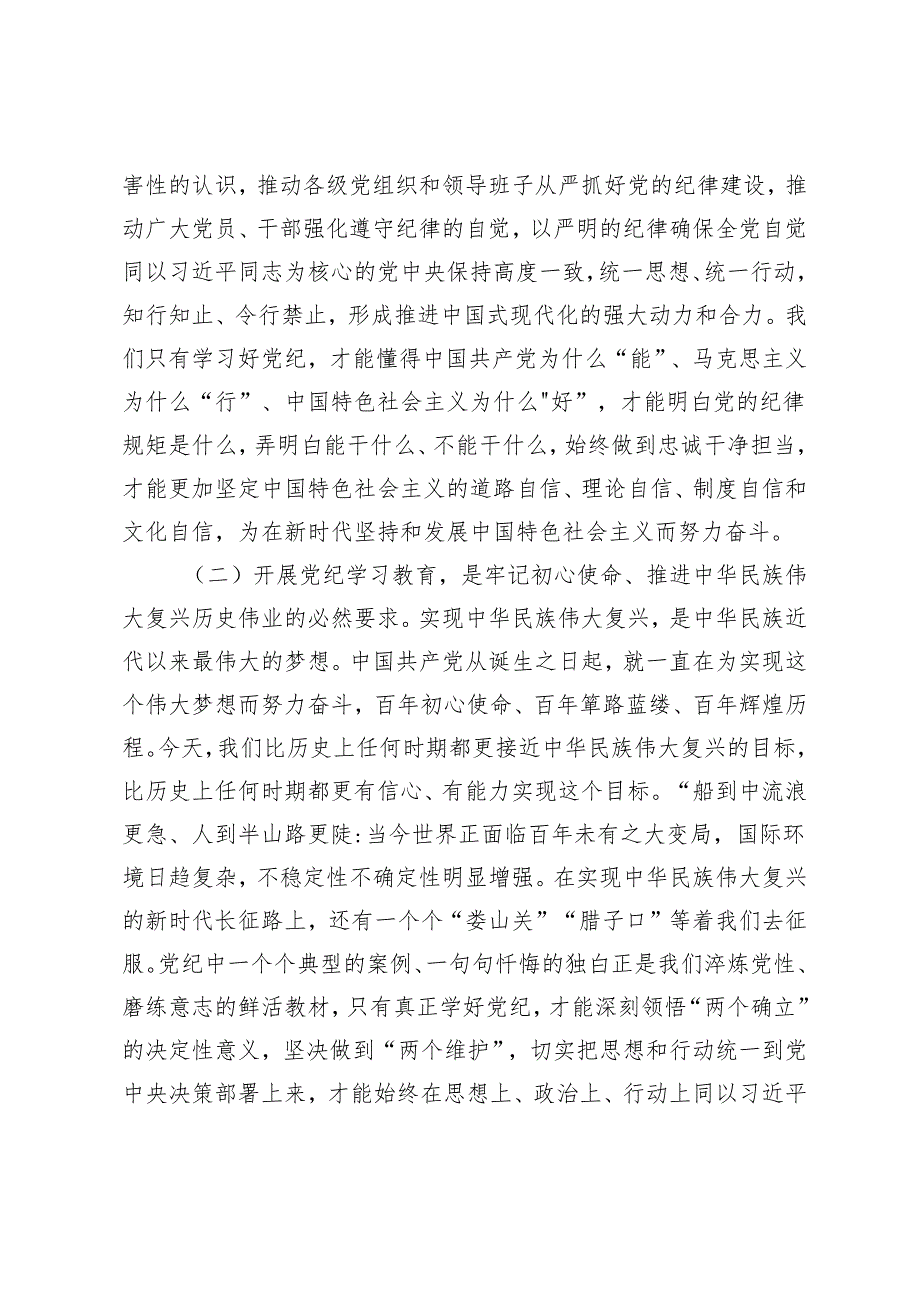 害性的认识，推动各级党组织和领导班子从严抓好党的纪律建设，推
动广大党员、干部强化遵守纪律的自觉，以严明的纪律确保全党自觉
同以习近平同志为核心的党中央保持高度一致，统一思想、统一行动，
知行知止、令行禁止，形成推进中国式现代化的强大动力和合力。我
们只有学习好党纪，才能懂得中国共产党为什么“能”、马克思主义
为什么“行”、中国特色社会主义为什么"好”，才能明白党的纪律
规矩是什么，弄明白能干什么、不能干什么，始终做到忠诚干净担当，
才能更加坚定中国特色社会主义的道路自信、理论自信、制度自信和
文化自信，为在新时代坚持和发展中国特色社会主义而努力奋斗。
（二）开展党纪学习教育，是牢记初心使命、推进中华民族伟
大复兴历史伟业的必然要求。实现中华民族伟大复兴，是中华民族近
代以来最伟大的梦想。中国共产党从诞生之日起，就一直在为实现这
个伟大梦想而努力奋斗，百年初心使命、百年筚路蓝缕、百年辉煌历
程。今天，我们比历史上任何时期都更接近中华民族伟大复兴的目标，
比历史上任何时期都更有信心、有能力实现这个目标。“船到中流浪
更急、人到半山路更陡:当今世界正面临百年未有之大变局，国际环
境日趋复杂，不稳定性不确定性明显增强。在实现中华民族伟大复兴
的新时代长征路上，还有一个个“娄山关”“腊子口”等着我们去征
服。党纪中一个个典型的案例、一句句忏悔的独白正是我们淬炼党性、
磨练意志的鲜活教材，只有真正学好党纪，才能深刻领悟“两个确立”
的决定性意义，坚决做到“两个维护”，切实把思想和行动统一到党
中央决策部署上来，才能始终在思想上、政治上、行动上同以习近平